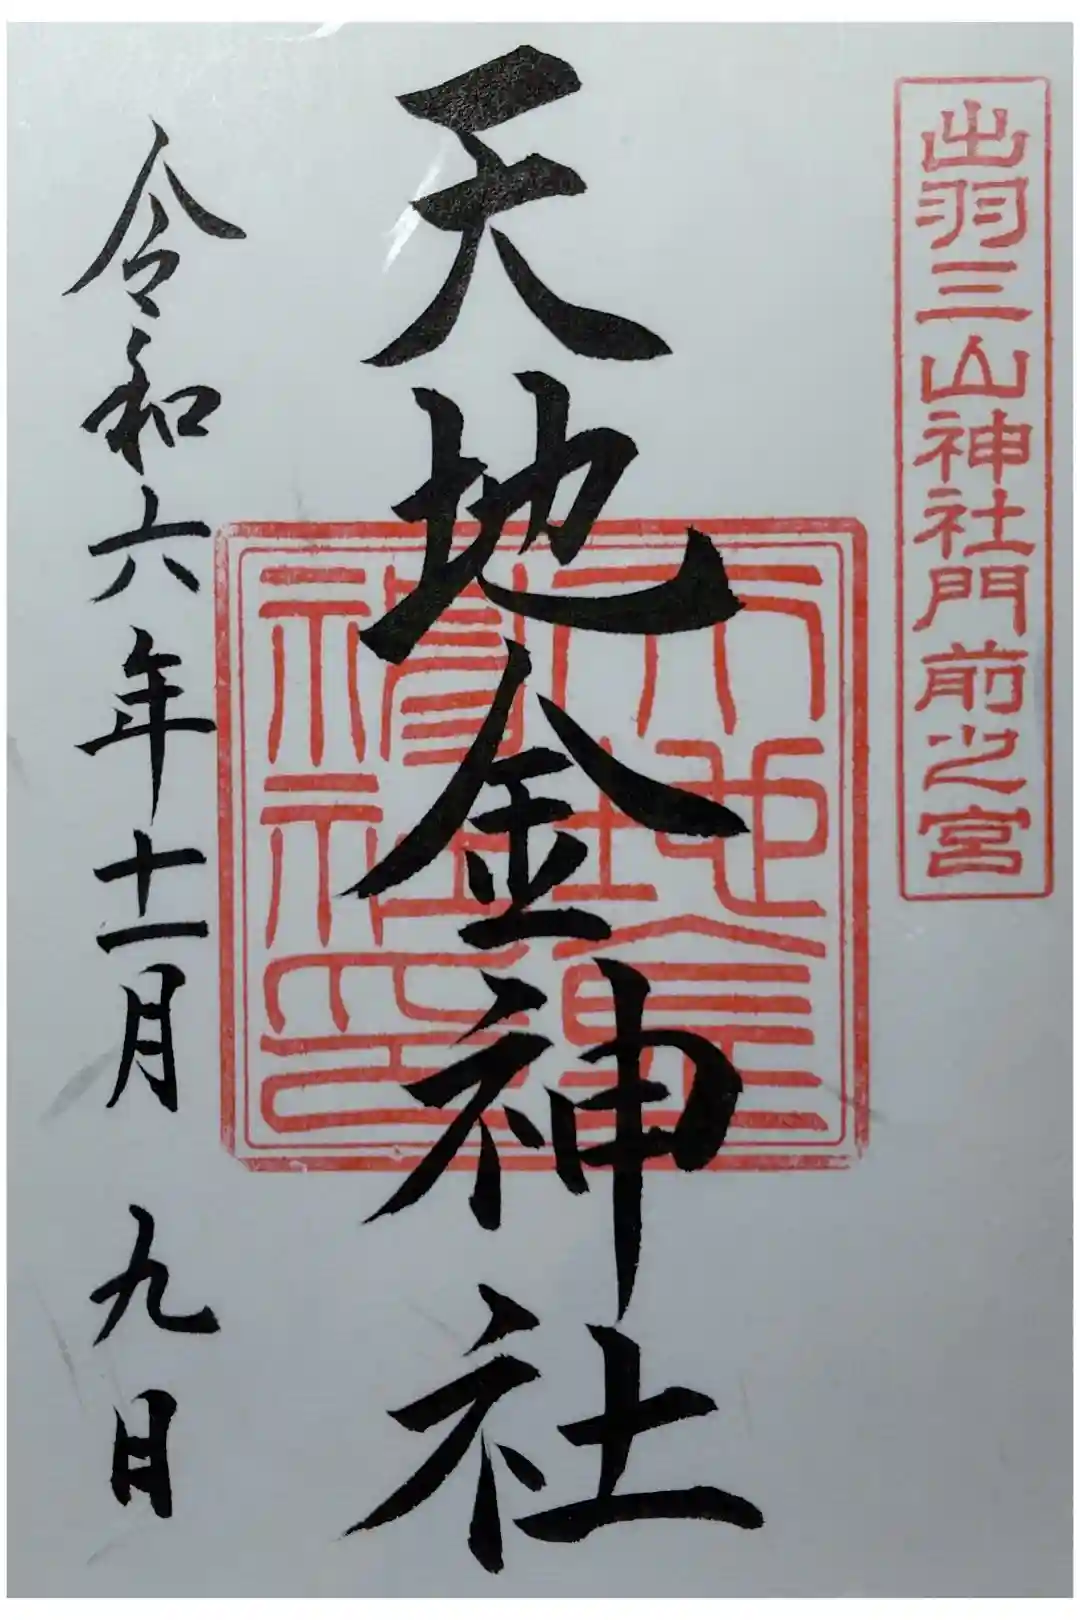 出羽三山神社門前之宮
天地金神社
天地金神社印
令和六年十一月九日